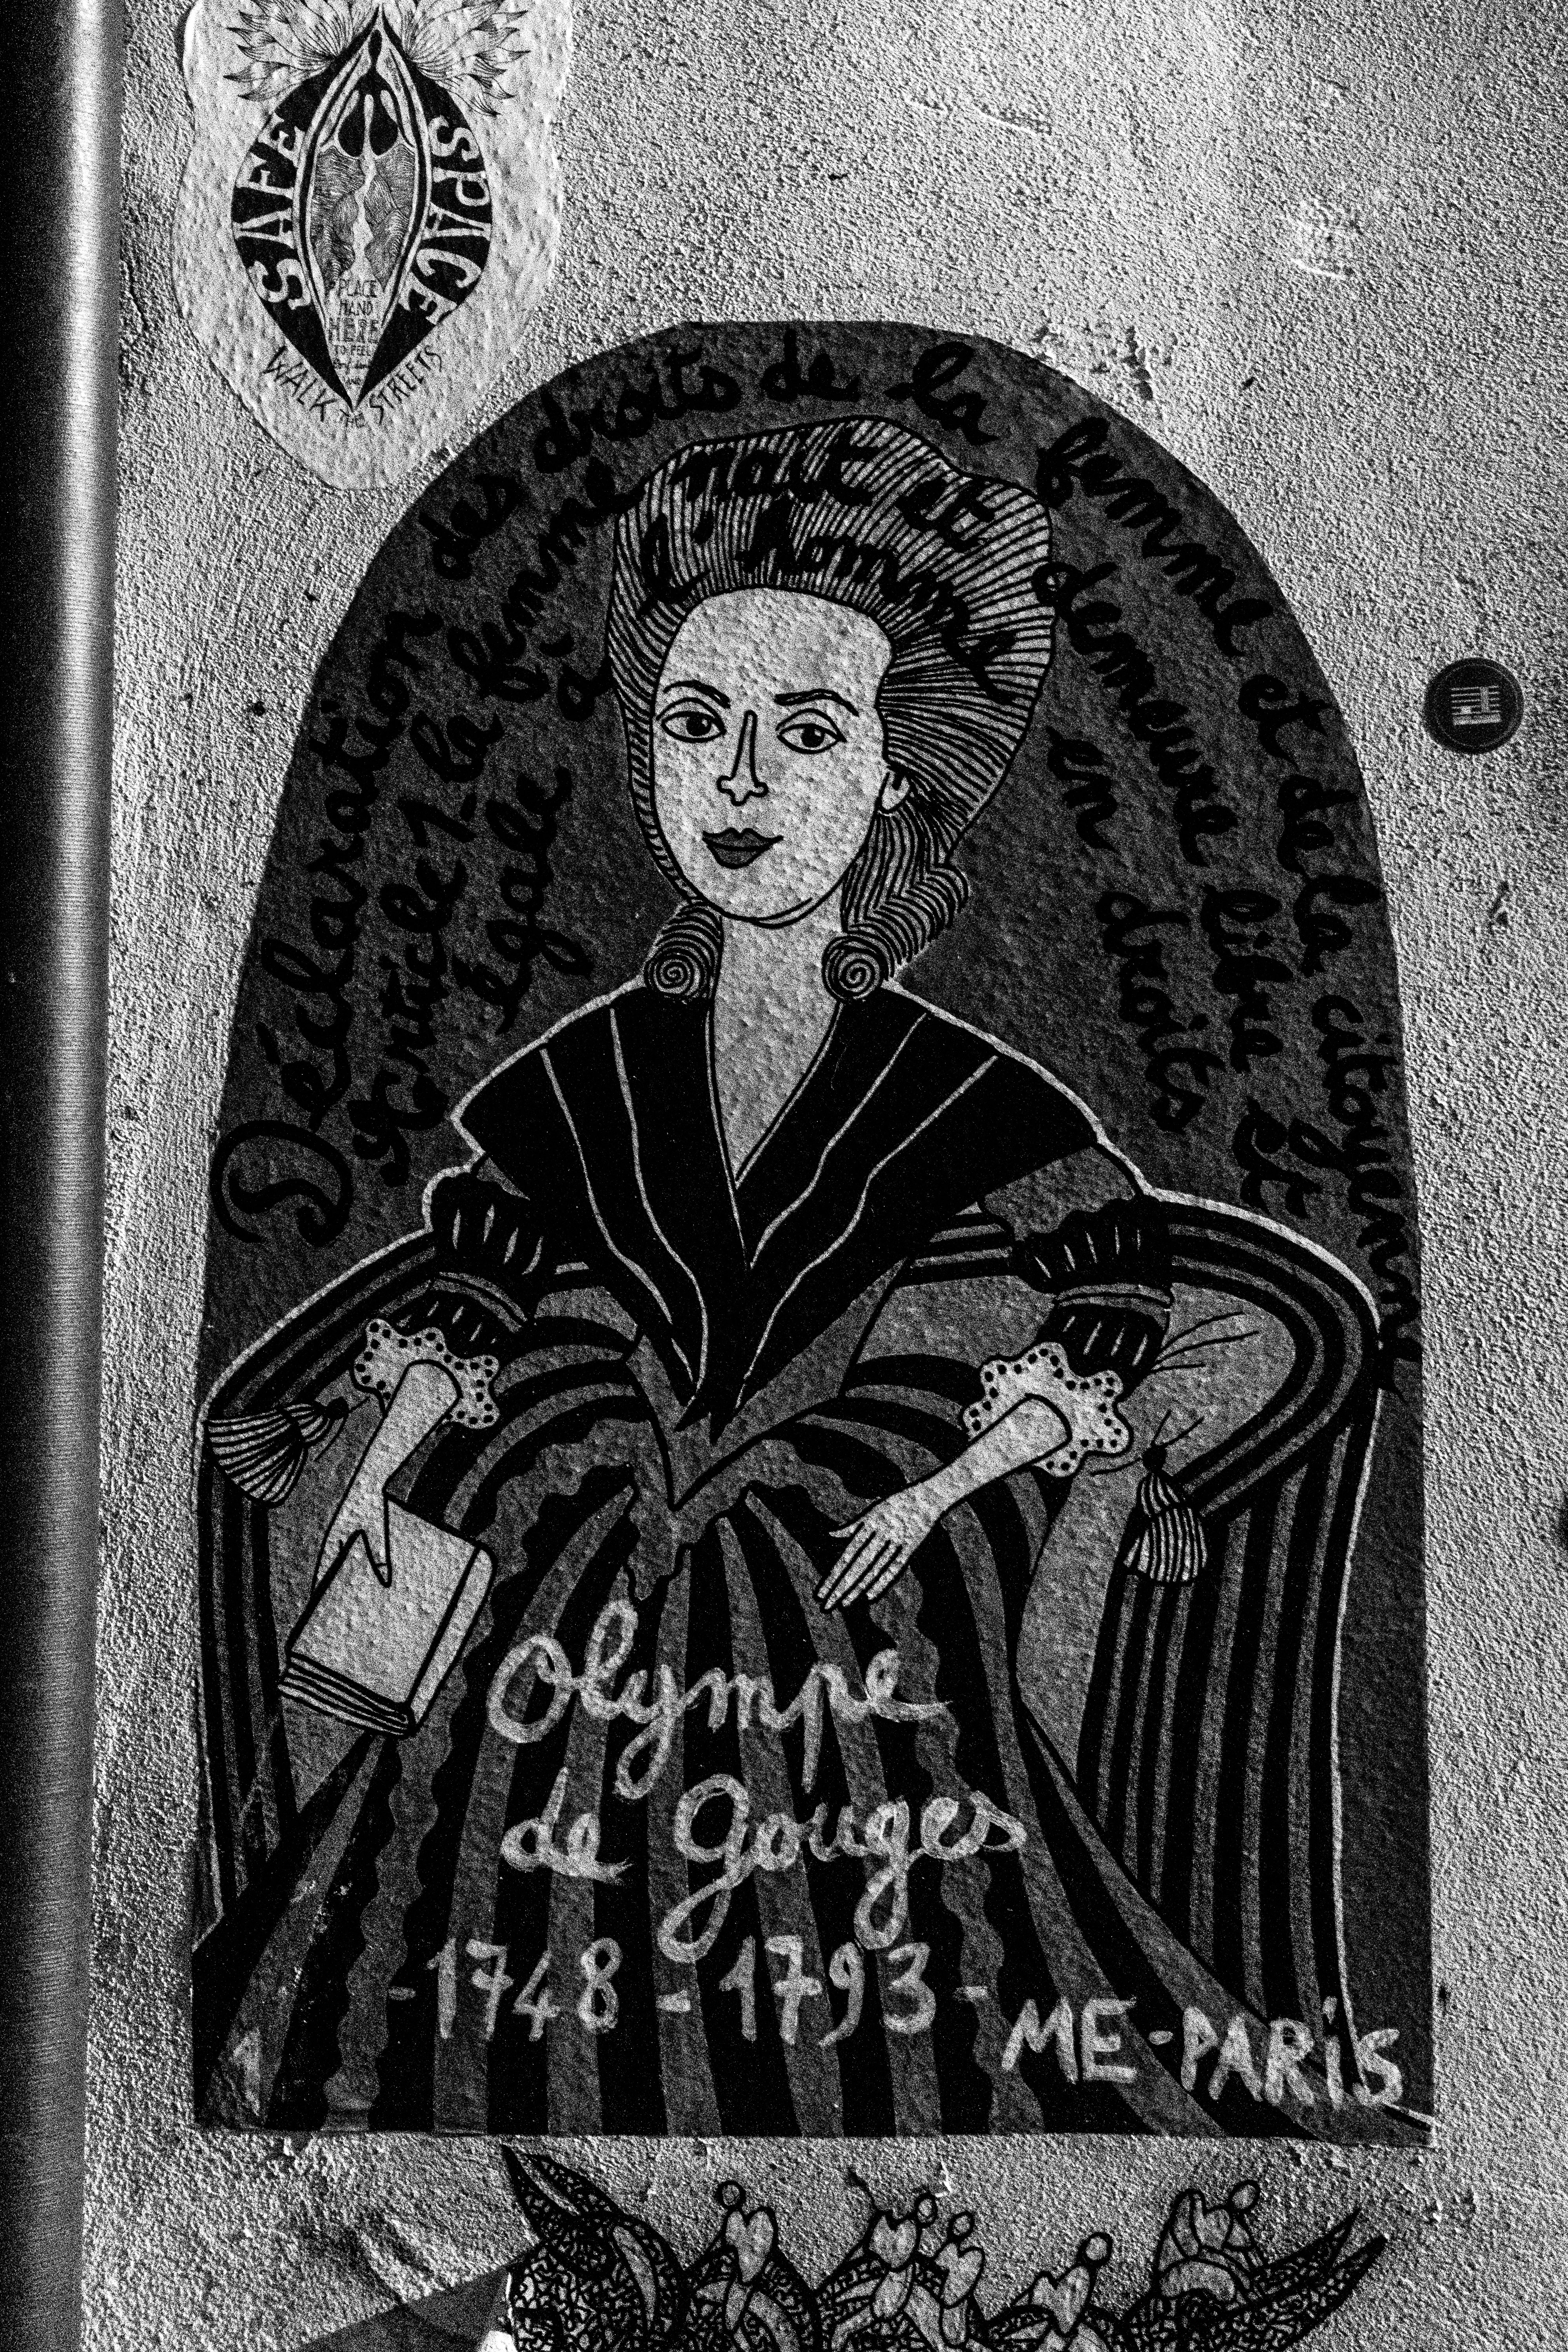 SAFE SPACE
PLACE
HAND
HERE
TO FEEL
WALK THE STREETS
Déclaration des droits de la femme et de la citoyenne
Article 1 la femme nait et demeure libre et
égale à l'homme en droits
Olympe
de Gouges
-1748-1793-
ME-PARiS